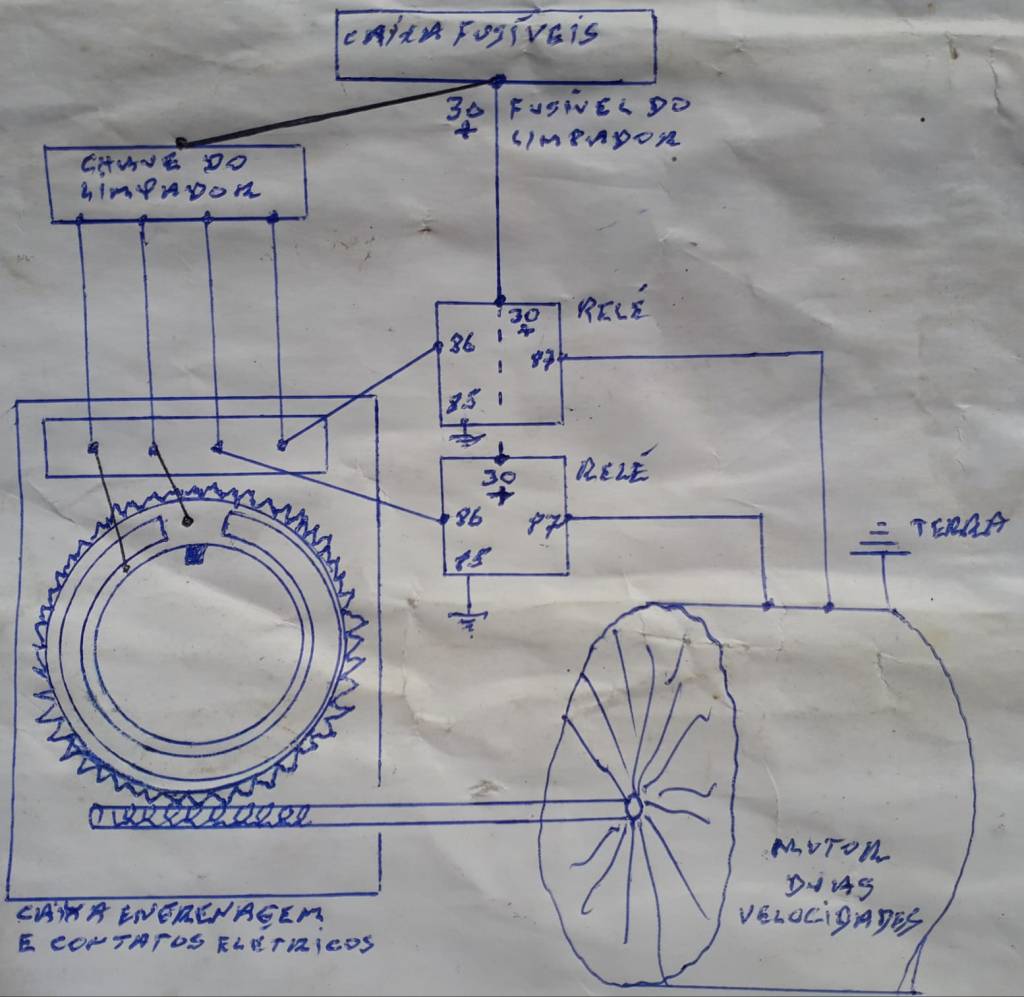 CAÍXA FUSÍVEIS
30
+
FUSÍVEL DO
LIMPADOR
CHAVE DO
LIMPADOR
RELÉ
30
+
86
87
85
RELÉ
30
+
86
87
85
TERRA
MOTOR
DUAS
VELOCIDADES
CAIXA ENGRENAGEM
E CONTATOS ELÉTRICOS